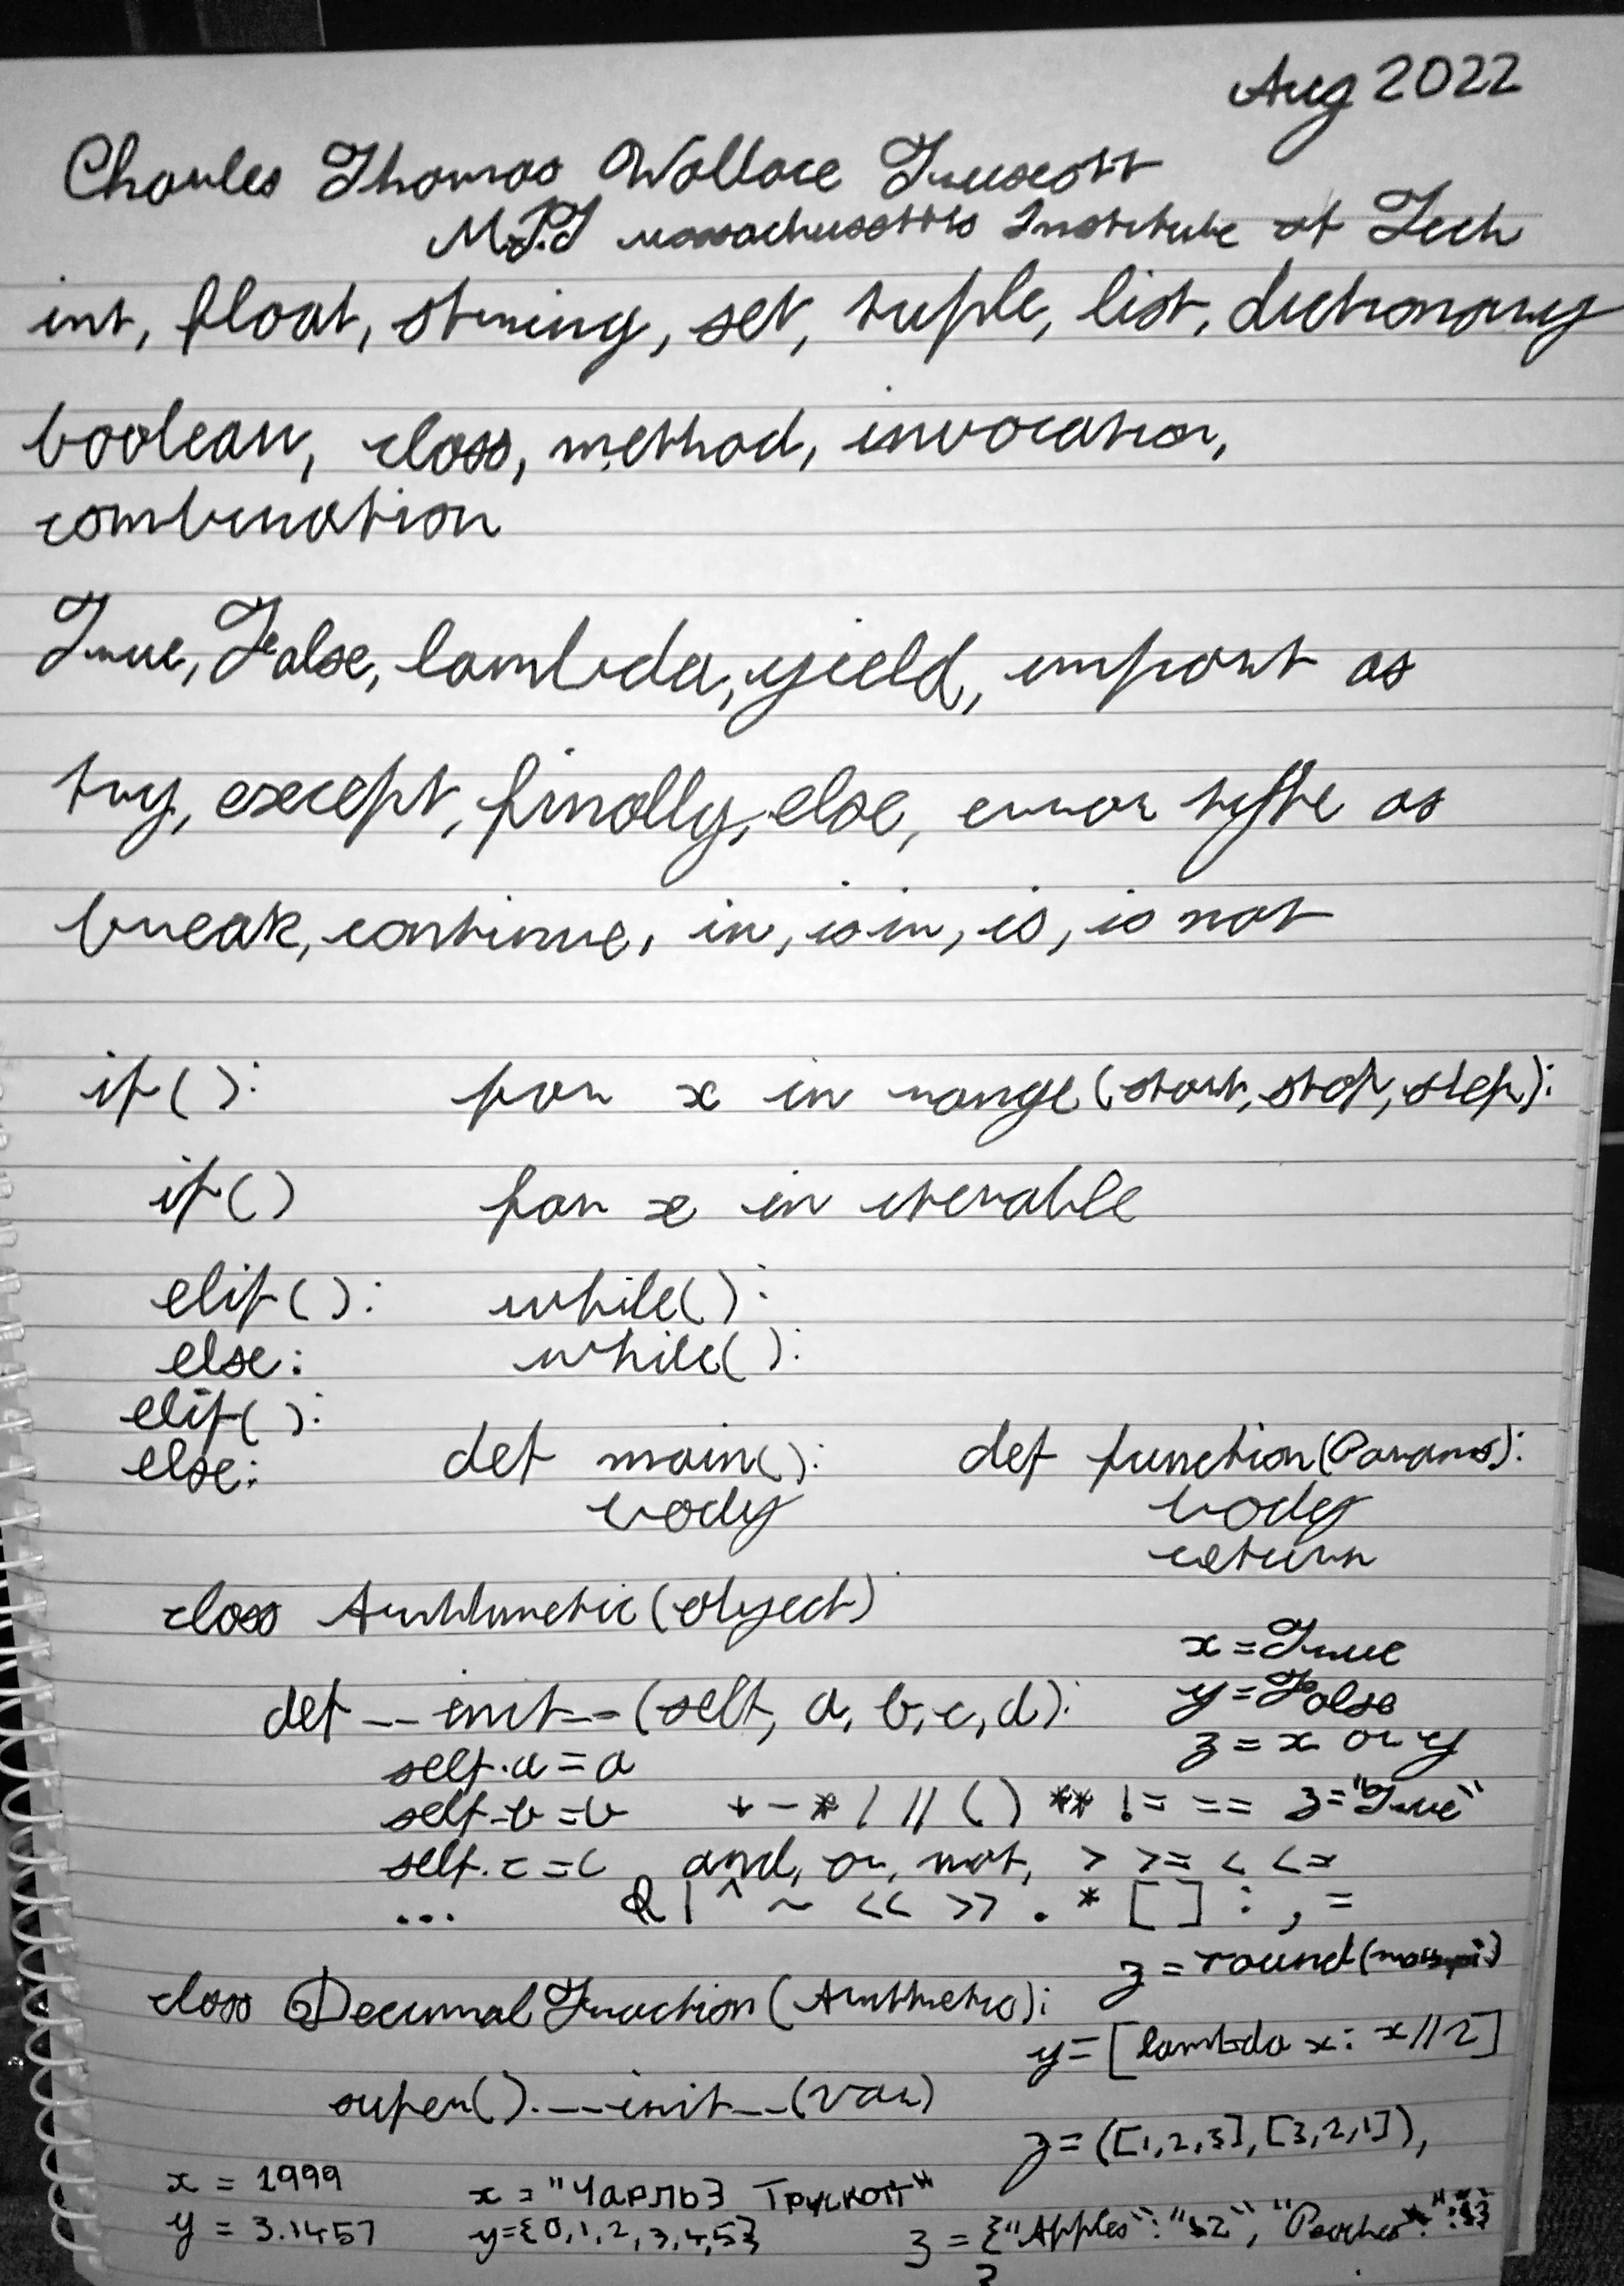 Aug 2022
Charles Thomas Wallace Truscott
M.I.T Massachusetts Institute of Tech
int, float, string, set, tuple, list, dictionary
boolean, class, method, invocation,
combination
True, False, lambda, yield, import as
try, except, finally, else, error type as
break, continue, in, is in, is, is not
if(): for x in range(start, stop, step):
if() for x in iterable
elif(): while():
else: while():
elif():
else: def main(): def function(Params):
body body
return
class Arithmetic(object)
x = True
def __init__(self, a, b, c, d): y = False
self.a = a z = x or y
self.b = b + - * / // ( ) ** != == z="True"
self.c = c and, or, not, > >= < <=
... & | ^ ~ << >> . * [ ] : , =
z = round(
class DecimalFraction(Arithmetic):
y = [lambda x: x//2]
super().__init__(var)
z = ([1,2,3],[3,2,1]),
x = 1999 x = "Чарльз Трускотт"
y = 3.1457 y={0,1,2,3,4,5} z = {"Apples": "$2", "Peaches":
}